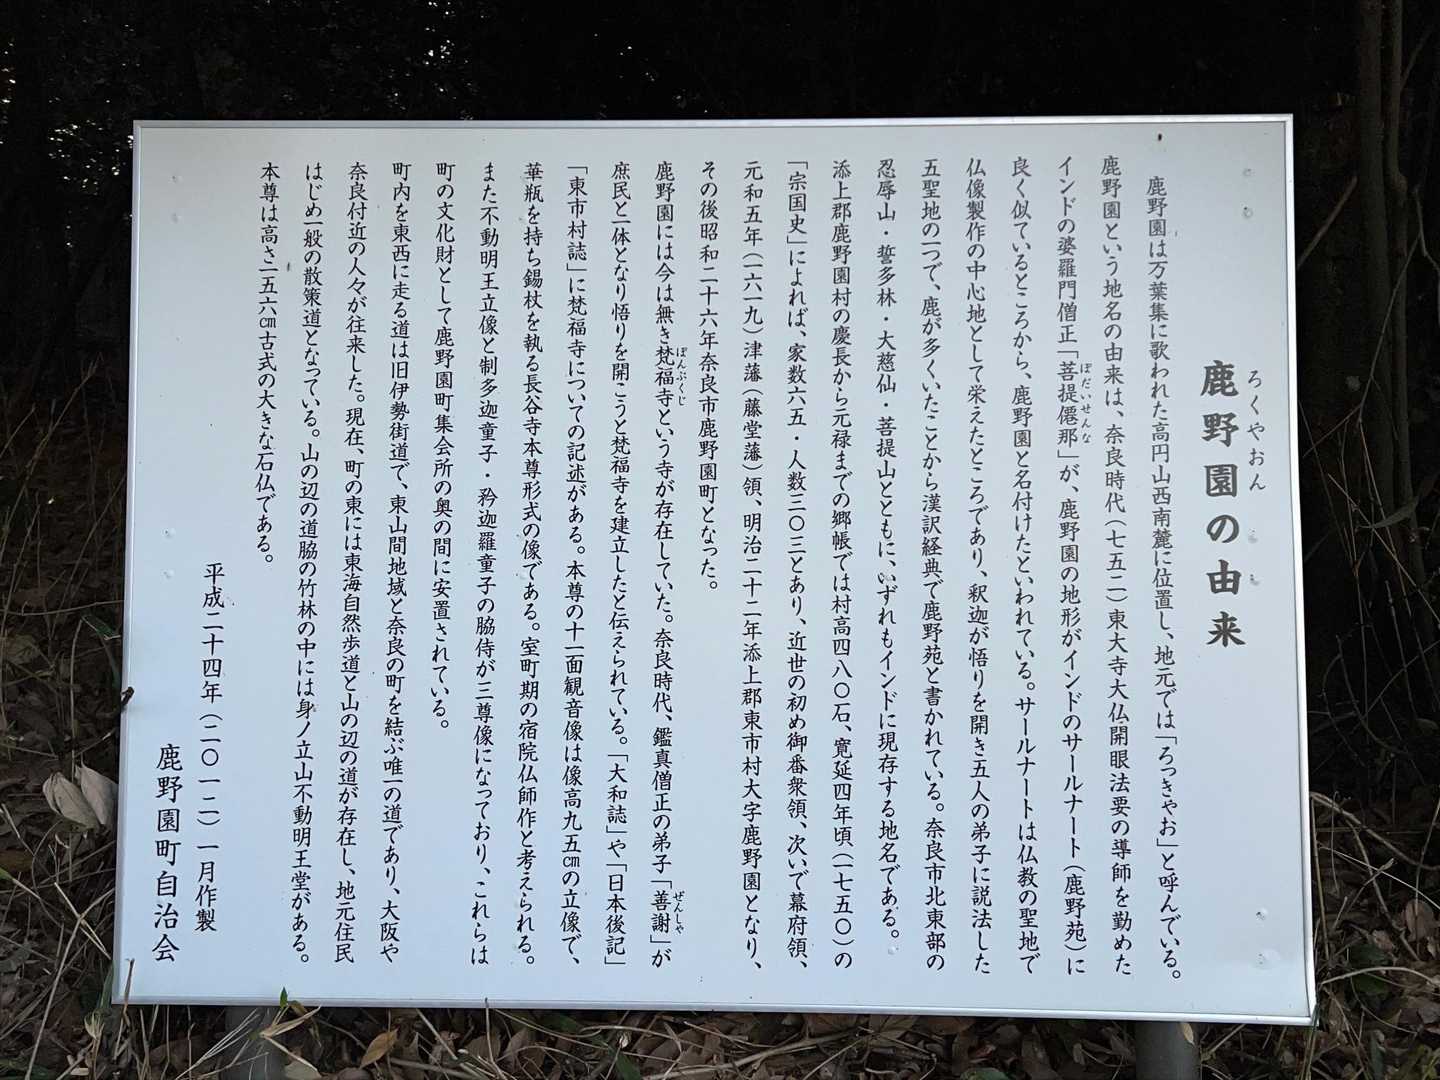 鹿野園の由来
ろくやおん
鹿野園は万葉集に歌われた高円山西南麓に位置し、地元では「ろっきゃお」と呼んでいる。
鹿野園という地名の由来は、奈良時代(七五二)東大寺大仏開眼法要の導師を勤めた
インドの婆羅門僧正「菩提僊那」が、鹿野園の地形がインドのサールナート(鹿野苑)に
ぼだいせんな
良く似ているところから、鹿野園と名付けたといわれている。サールナートは仏教の聖地で
仏像製作の中心地として栄えたところであり、釈迦が悟りを開き五人の弟子に説法した
五聖地の一つで、鹿が多くいたことから漢訳経典で鹿野苑と書かれている。奈良市北東部の
忍辱山・誓多林・大慈仙・菩提山とともに、いずれもインドに現存する地名である。
添上郡鹿野園村の慶長から元禄までの郷帳では村高四八〇石、寛延四年頃(一七五〇)の
「宗国史」によれば、家数六五・人数三〇三とあり、近世の初め御番衆領、次いで幕府領、
元和五年(一六一九)津藩(藤堂藩)領、明治二十二年添上郡東市村大字鹿野園となり、
その後昭和二十六年奈良市鹿野園町となった。
鹿野園には今は無き梵福寺という寺が存在していた。奈良時代、鑑真僧正の弟子「善謝」が
ぼんぶくじ
ぜんしゃ
庶民と一体となり悟りを開こうと梵福寺を建立したと伝えられている。「大和誌」や「日本後記」
「東市村誌」に梵福寺についての記述がある。本尊の十一面観音像は像高九五㎝の立像で、
華瓶を持ち錫杖を執る長谷寺本尊形式の像である。室町期の宿院仏師作と考えられる。
また不動明王立像と制多迦童子・矜迦羅童子の脇侍が三尊像になっており、これらは
町の文化財として鹿野園町集会所の奥の間に安置されている。
町内を東西に走る道は旧伊勢街道で、東山間地域と奈良の町を結ぶ唯一の道であり、大阪や
奈良付近の人々が往来した。現在、町の東には東海自然歩道と山の辺の道が存在し、地元住民
はじめ一般の散策道となっている。山の辺の道脇の竹林の中には身ノ立山不動明王堂がある。
本尊は高さ二五六㎝古式の大きな石仏である。
平成二十四年(二〇一二)一月作製
鹿野園町自治会